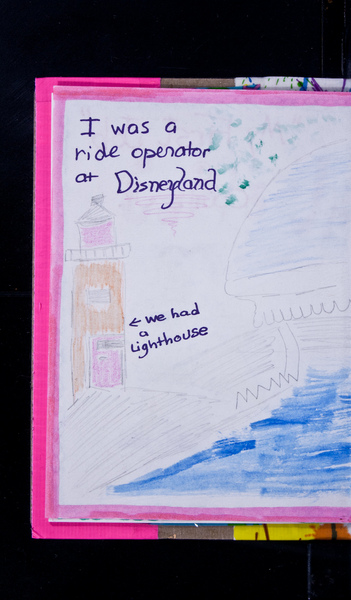 I was a
ride operator
at Disneyland
← we had
a
lighthouse